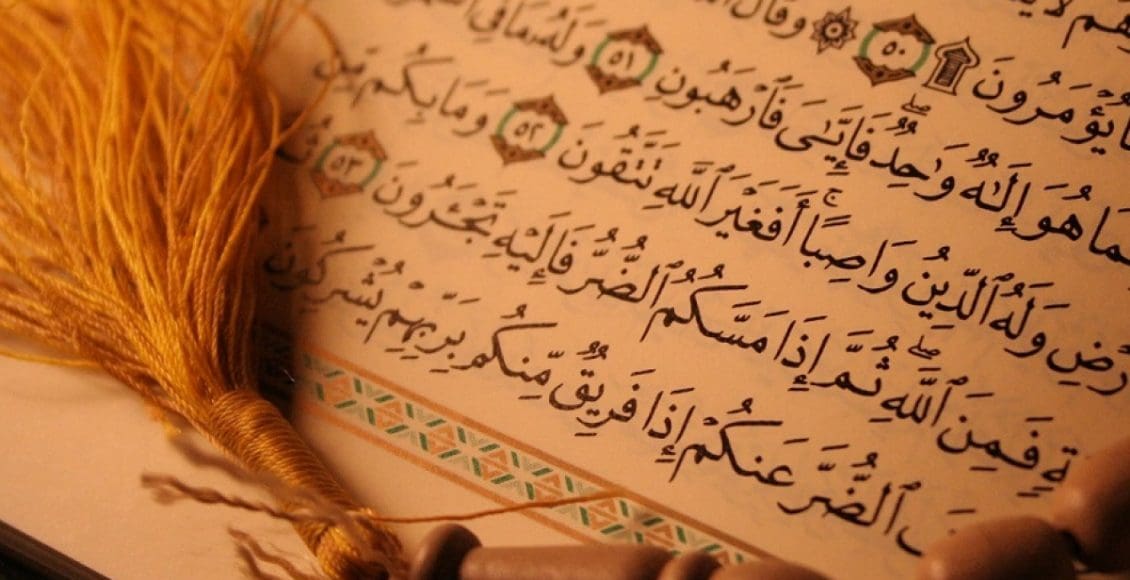 يُؤۡمَرُونَ ۩ ٥٠ ۞ وَقَالَ
هُوَ إِلَٰهٞ وَٰحِدٞ فَإِيَّٰيَ فَٱرۡهَبُونِ ٥١ وَلَهُۥ مَا فِي
رۡضِ وَلَهُ ٱلدِّينُ وَاصِبًاۚ أَفَغَيۡرَ ٱللَّهِ تَتَّقُونَ ٥٢ وَمَا بِكُم مِّن
ةٖ فَمِنَ ٱللَّهِۖ ثُمَّ إِذَا مَسَّكُمُ ٱلضُّرُّ فَإِلَيۡهِ تَجۡـَٔرُونَ ٥٣
ٱلضُّرَّ عَنكُمۡ إِذَا فَرِيقٞ مِّنكُم بِرَبِّهِمۡ يُشۡرِكُونَ